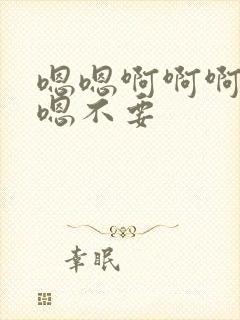 嗯嗯啊啊啊
嗯不要
幸眠